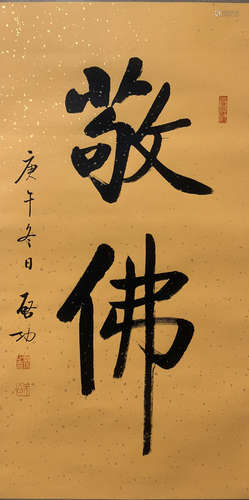 敬佛
庚午冬日 启功